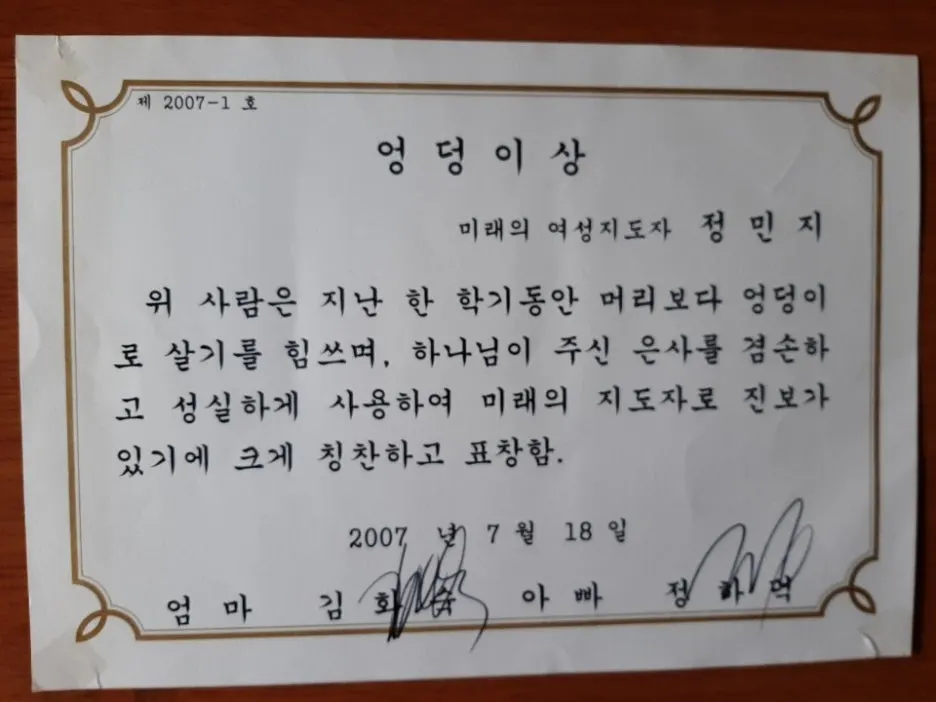 제 2007-1 호
엉덩이상
미래의 여성지도자 정민지
위 사람은 지난 한 학기동안 머리보다 엉덩이
로 살기를 힘쓰며, 하나님이 주신 은사를 겸손하
고 성실하게 사용하여 미래의 지도자로 진보가
있기에 크게 칭찬하고 표창함.
2007 년 7 월 18 일
엄마 김화 아빠 정하